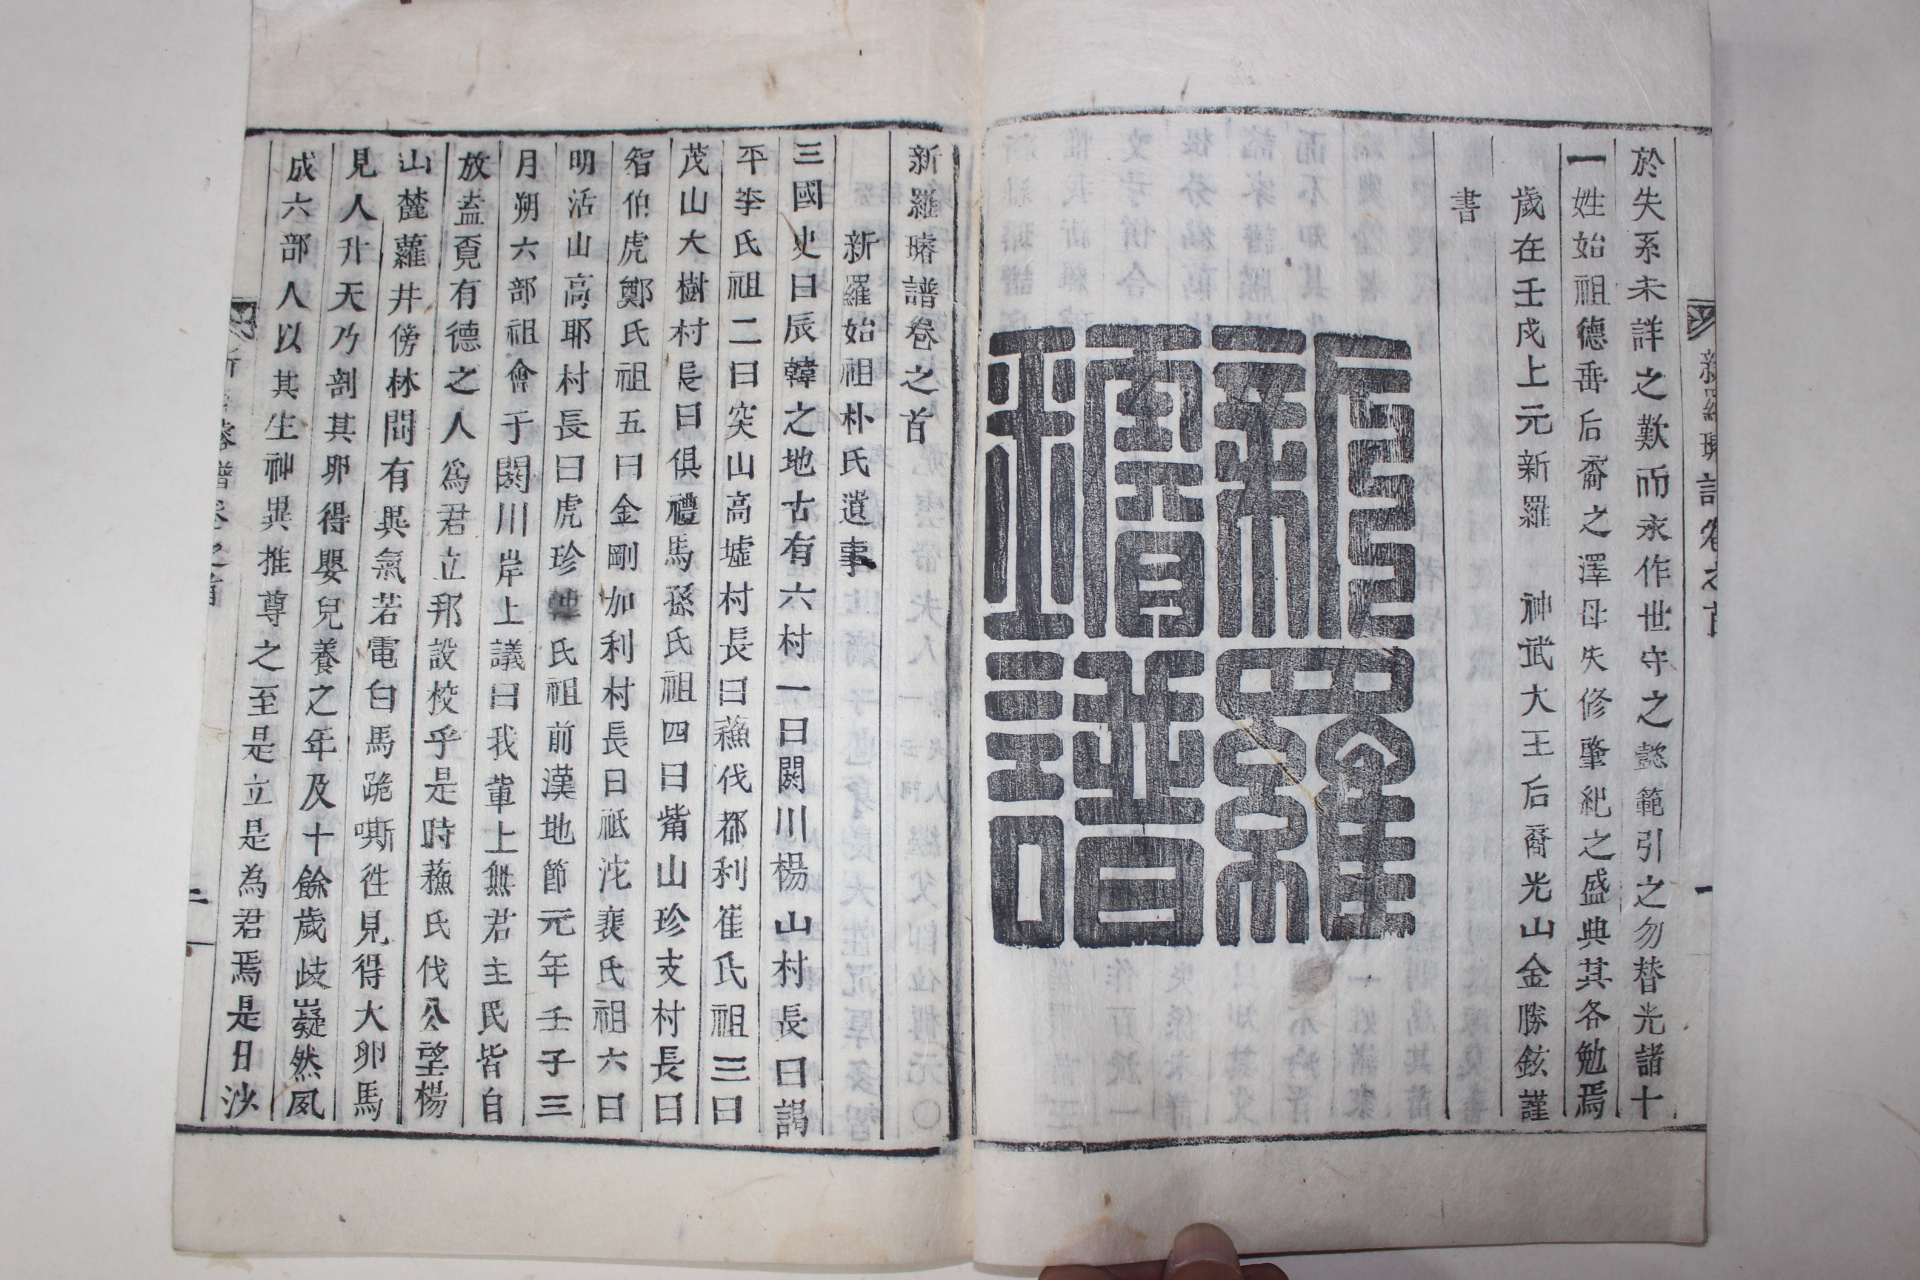 於失系未詳之歎而永作世守之懿範引之勿替光諸十
一姓始祖德垂后裔之澤毋失修肇紀之盛典其各勉焉
歲在壬戌上元新羅 神武大王后裔光山金勝鉉謹
書
新羅璿譜
新羅璿譜卷之首
新羅始祖朴氏遺事
三國史曰辰韓之地古有六村一曰閼川楊山村長曰謁
平李氏祖二曰突山高墟村長曰蘓伐都利崔氏祖三曰
茂山大樹村長曰俱禮馬孫氏祖四曰觜山珍支村長曰
智伯虎鄭氏祖五曰金剛加利村長曰祗沱裵氏祖六曰
明活山高耶村長曰虎珍 氏祖前漢地節元年壬子三
月朔六部祖會于閼川岸上議曰我輩上無君主民皆自
放盍覔有德之人為君立邦設校乎是時蘓氏伐公望楊
山麓蘿井傍林間有異氣若電白馬跪嘶徃見得大卵馬
見人升天乃剖其卵得嬰兒養之年及十餘歲歧嶷然夙
成六部人以其生神異推尊之至是立是為君焉是日沙